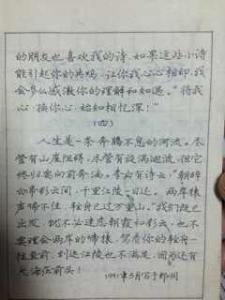 的朋友也喜欢我的诗，如果这些小诗
能引起你的共鸣，让你我心心相印，我
会多么感激你的理解和知遇。“将我
心，换你心，始知相忆深！”
（四）
人生是一条奔腾不息的河流。尽
管有山崖阻碍，尽管有旋涡逆流，但它
终归要向前奔涌。李白有诗云：“朝辞
白帝彩云间，千里江陵一日还。两岸猿
声啼不住，轻舟已过万重山。”我们既已
出发，就不必迷恋朝霞和彩云，也不
要理会两岸的啼猿，驾着你的轻舟一
往直前，到达江陵也不满足，因为还有
大海在前头！
1991年3月写于郑州